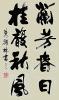 蘭芳春日
桂馥秋風